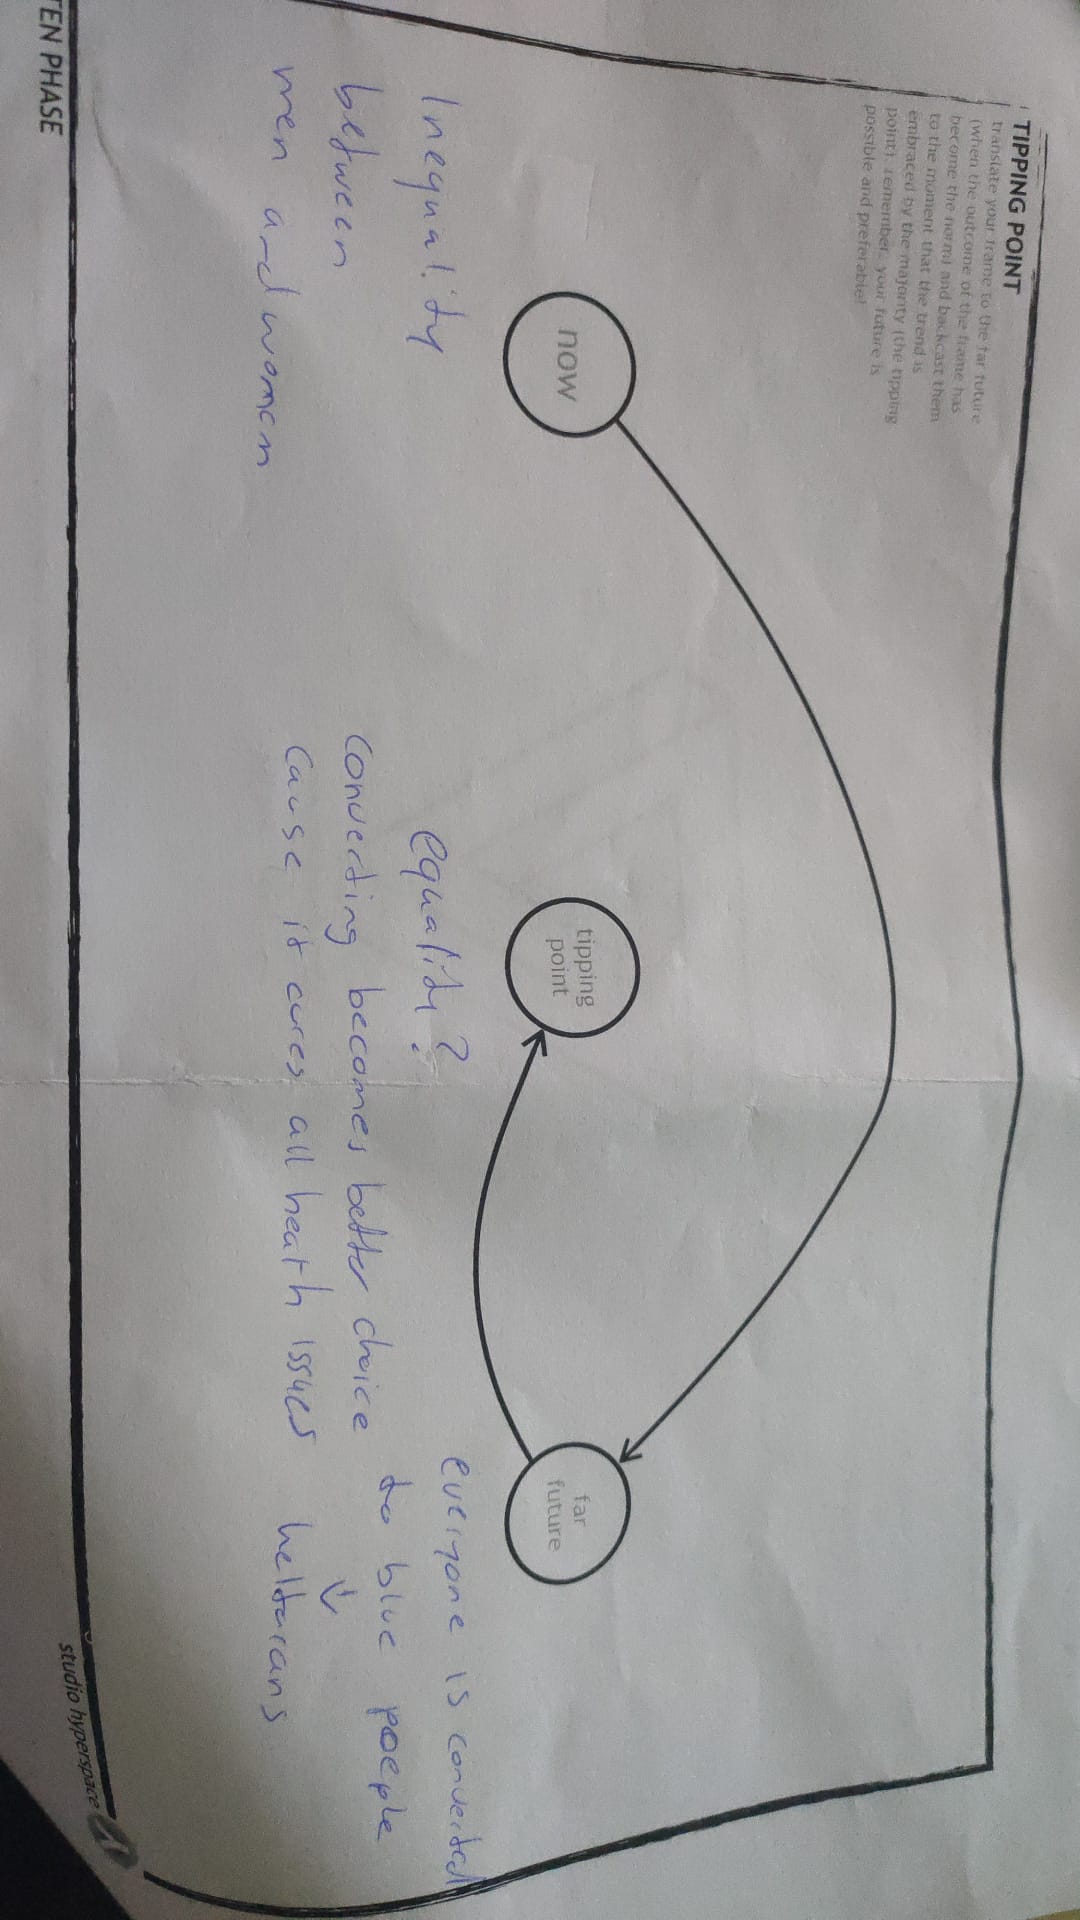 TIPPING POINT
translate your frame to the far future
(when the outcome of the frame has
become the norm) and backcast them
to the moment that the trend is
embraced by the majority (the tipping
point). remember: your future is
possible and preferable!
now
tipping
point
far
future
Inequality
between
men and women
equality?
converting becomes better choice
cause it cures all heath issues
everyone is converted
to blue poeple
↓
heltarans
TEN PHASE
studio hyperspace